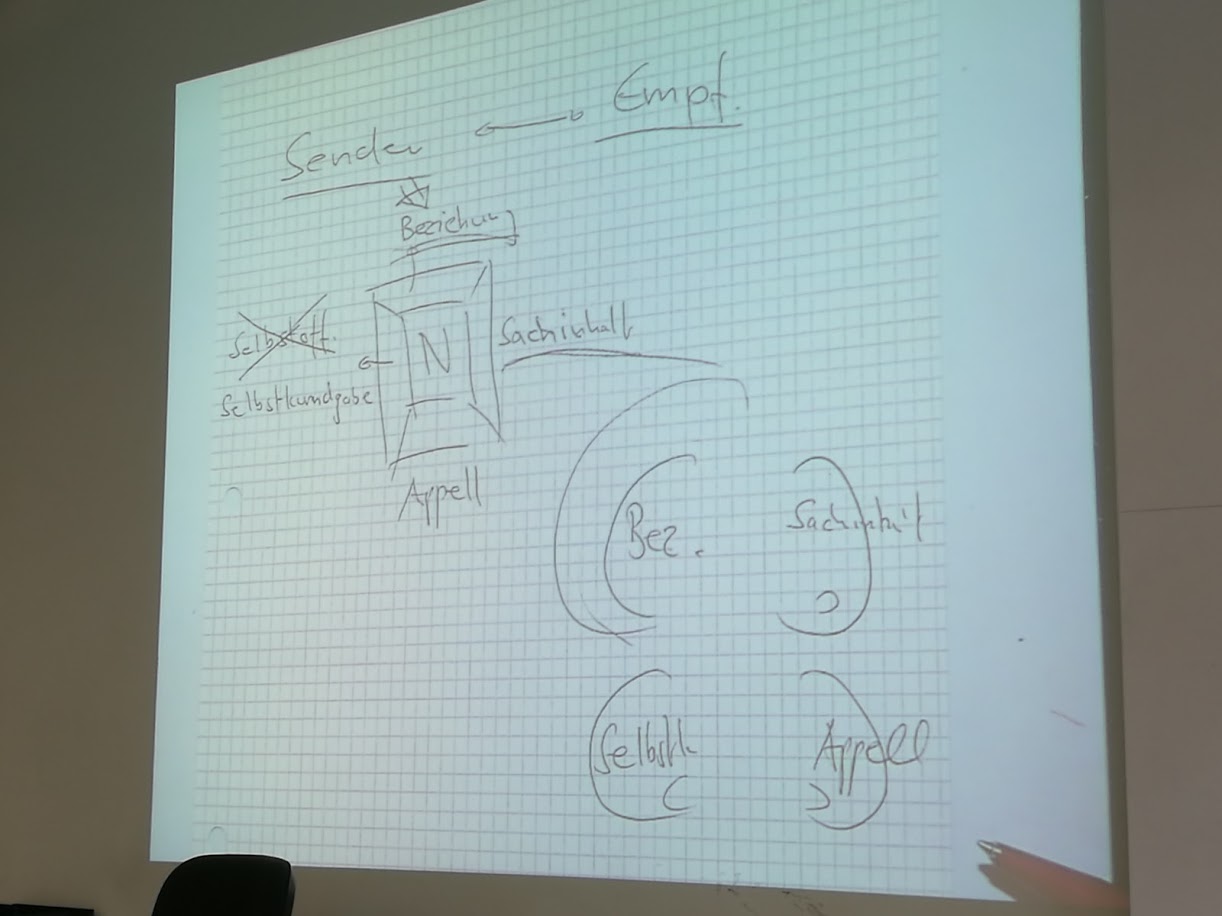 Sender
Empf.
Beziehung
Selbstoff.
Selbstkundgabe
N
Sachinhalt
Appell
Bez.
Sachinhalt
Selbstk
Appell